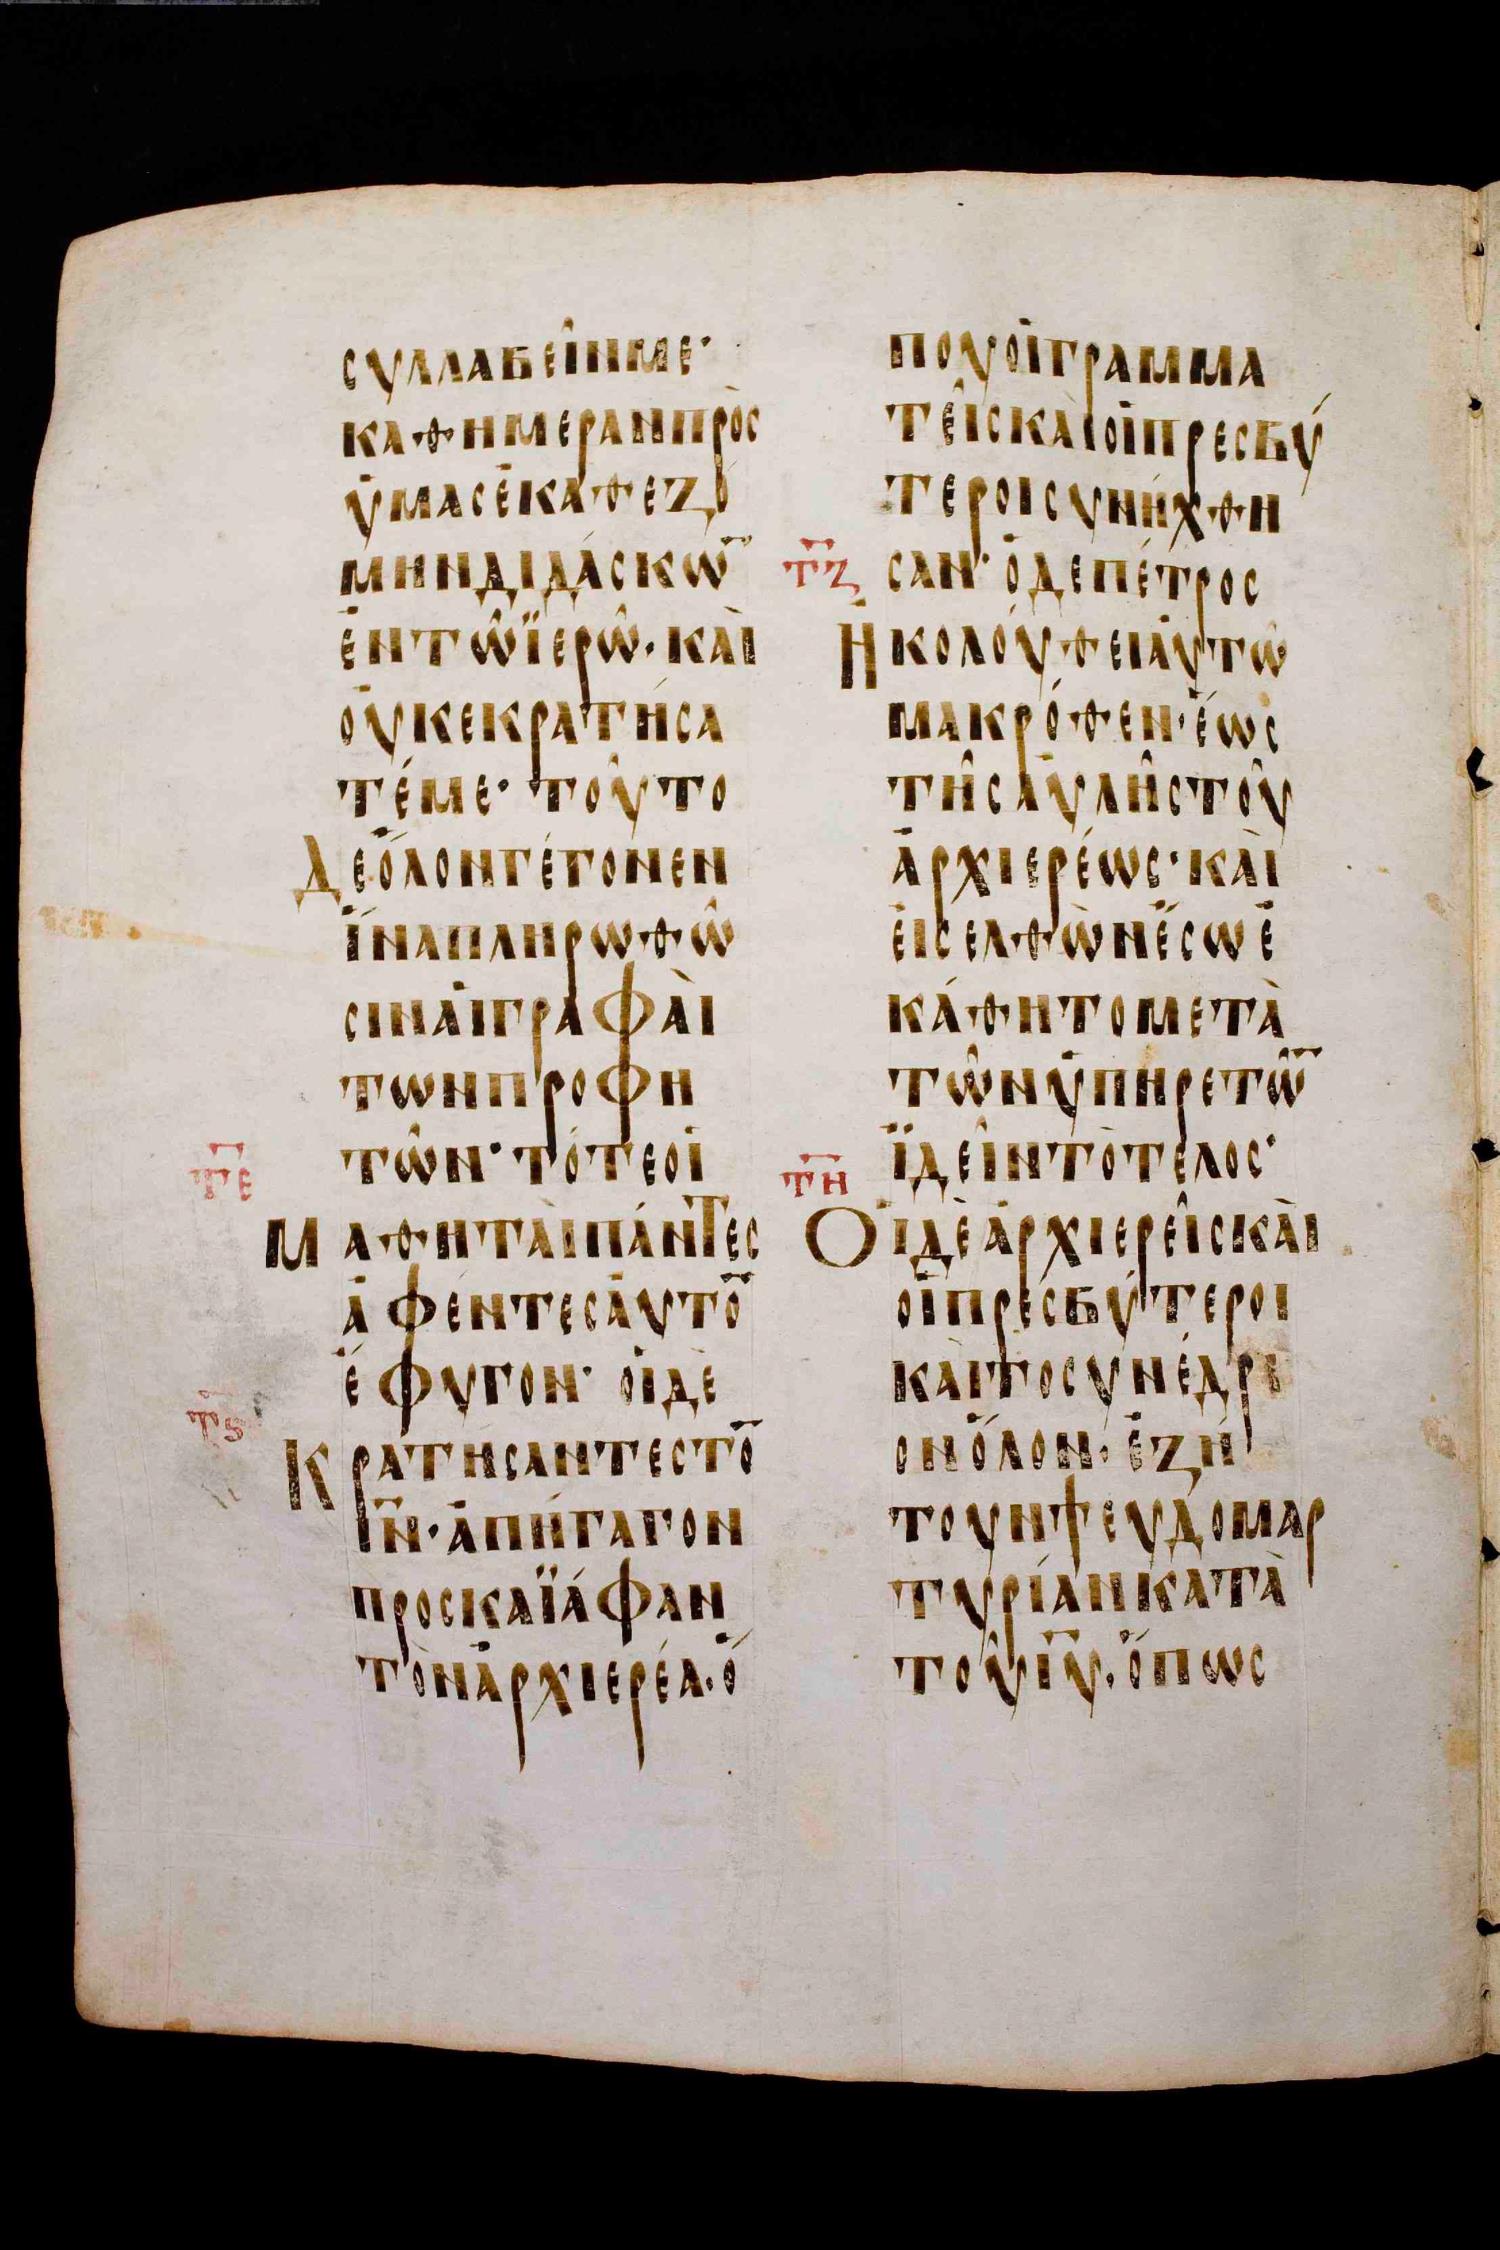 συλλαβεῖνμε·
καθημερανπρὸς
ὑμασἐκαθεζό
μηνδιδάσκω̅
ἐντῶϊερῶ· καὶ
οὐκεκρατήσα
τέμε· τοῦτο
Δεὅλονγέγονεν
ἵναπληρωθῶ
σιναἱγραφαὶ
τωνπροφη
τῶν· τότεοἱ
τ̅ε̅
Μαθηταὶπάντες
ἀφέντεσἀυτο̅
ἔφυγον· οἱδὲ
τ̅ς̅
Κρατήσαντεστο̅
ι̅ν̅· ἀπήγαγον
προσκαϊάφαν
τὸνἀρχιερέα· ὅ
πουοἱγραμμα
τεῖσκαὶοἱπρεσβύ
τεροισυνήχθη
τ̅ζ̅
σαν· ὁδεπέτρος
Ἠκολούθειἀυτῶ
μακρόθεν· ἕως
τῆσἀυλῆστοῦ
ἀρχιερέως· καὶ
ἐισελθὼνἔσωἐ
κάθητομετὰ
τῶνὑπηρετῶ̅
ϊδεῖντὸτελος·
τ̅η̅
Οἱδὲἀρχιερεῖσκαὶ
οἱπρεσβύτεροι
καὶτοσυνέδρι
ονὅλον· ἐζή
τουνψευδομαρ
τυρίανκατὰ
τοῦι̅υ̅· ὅπως